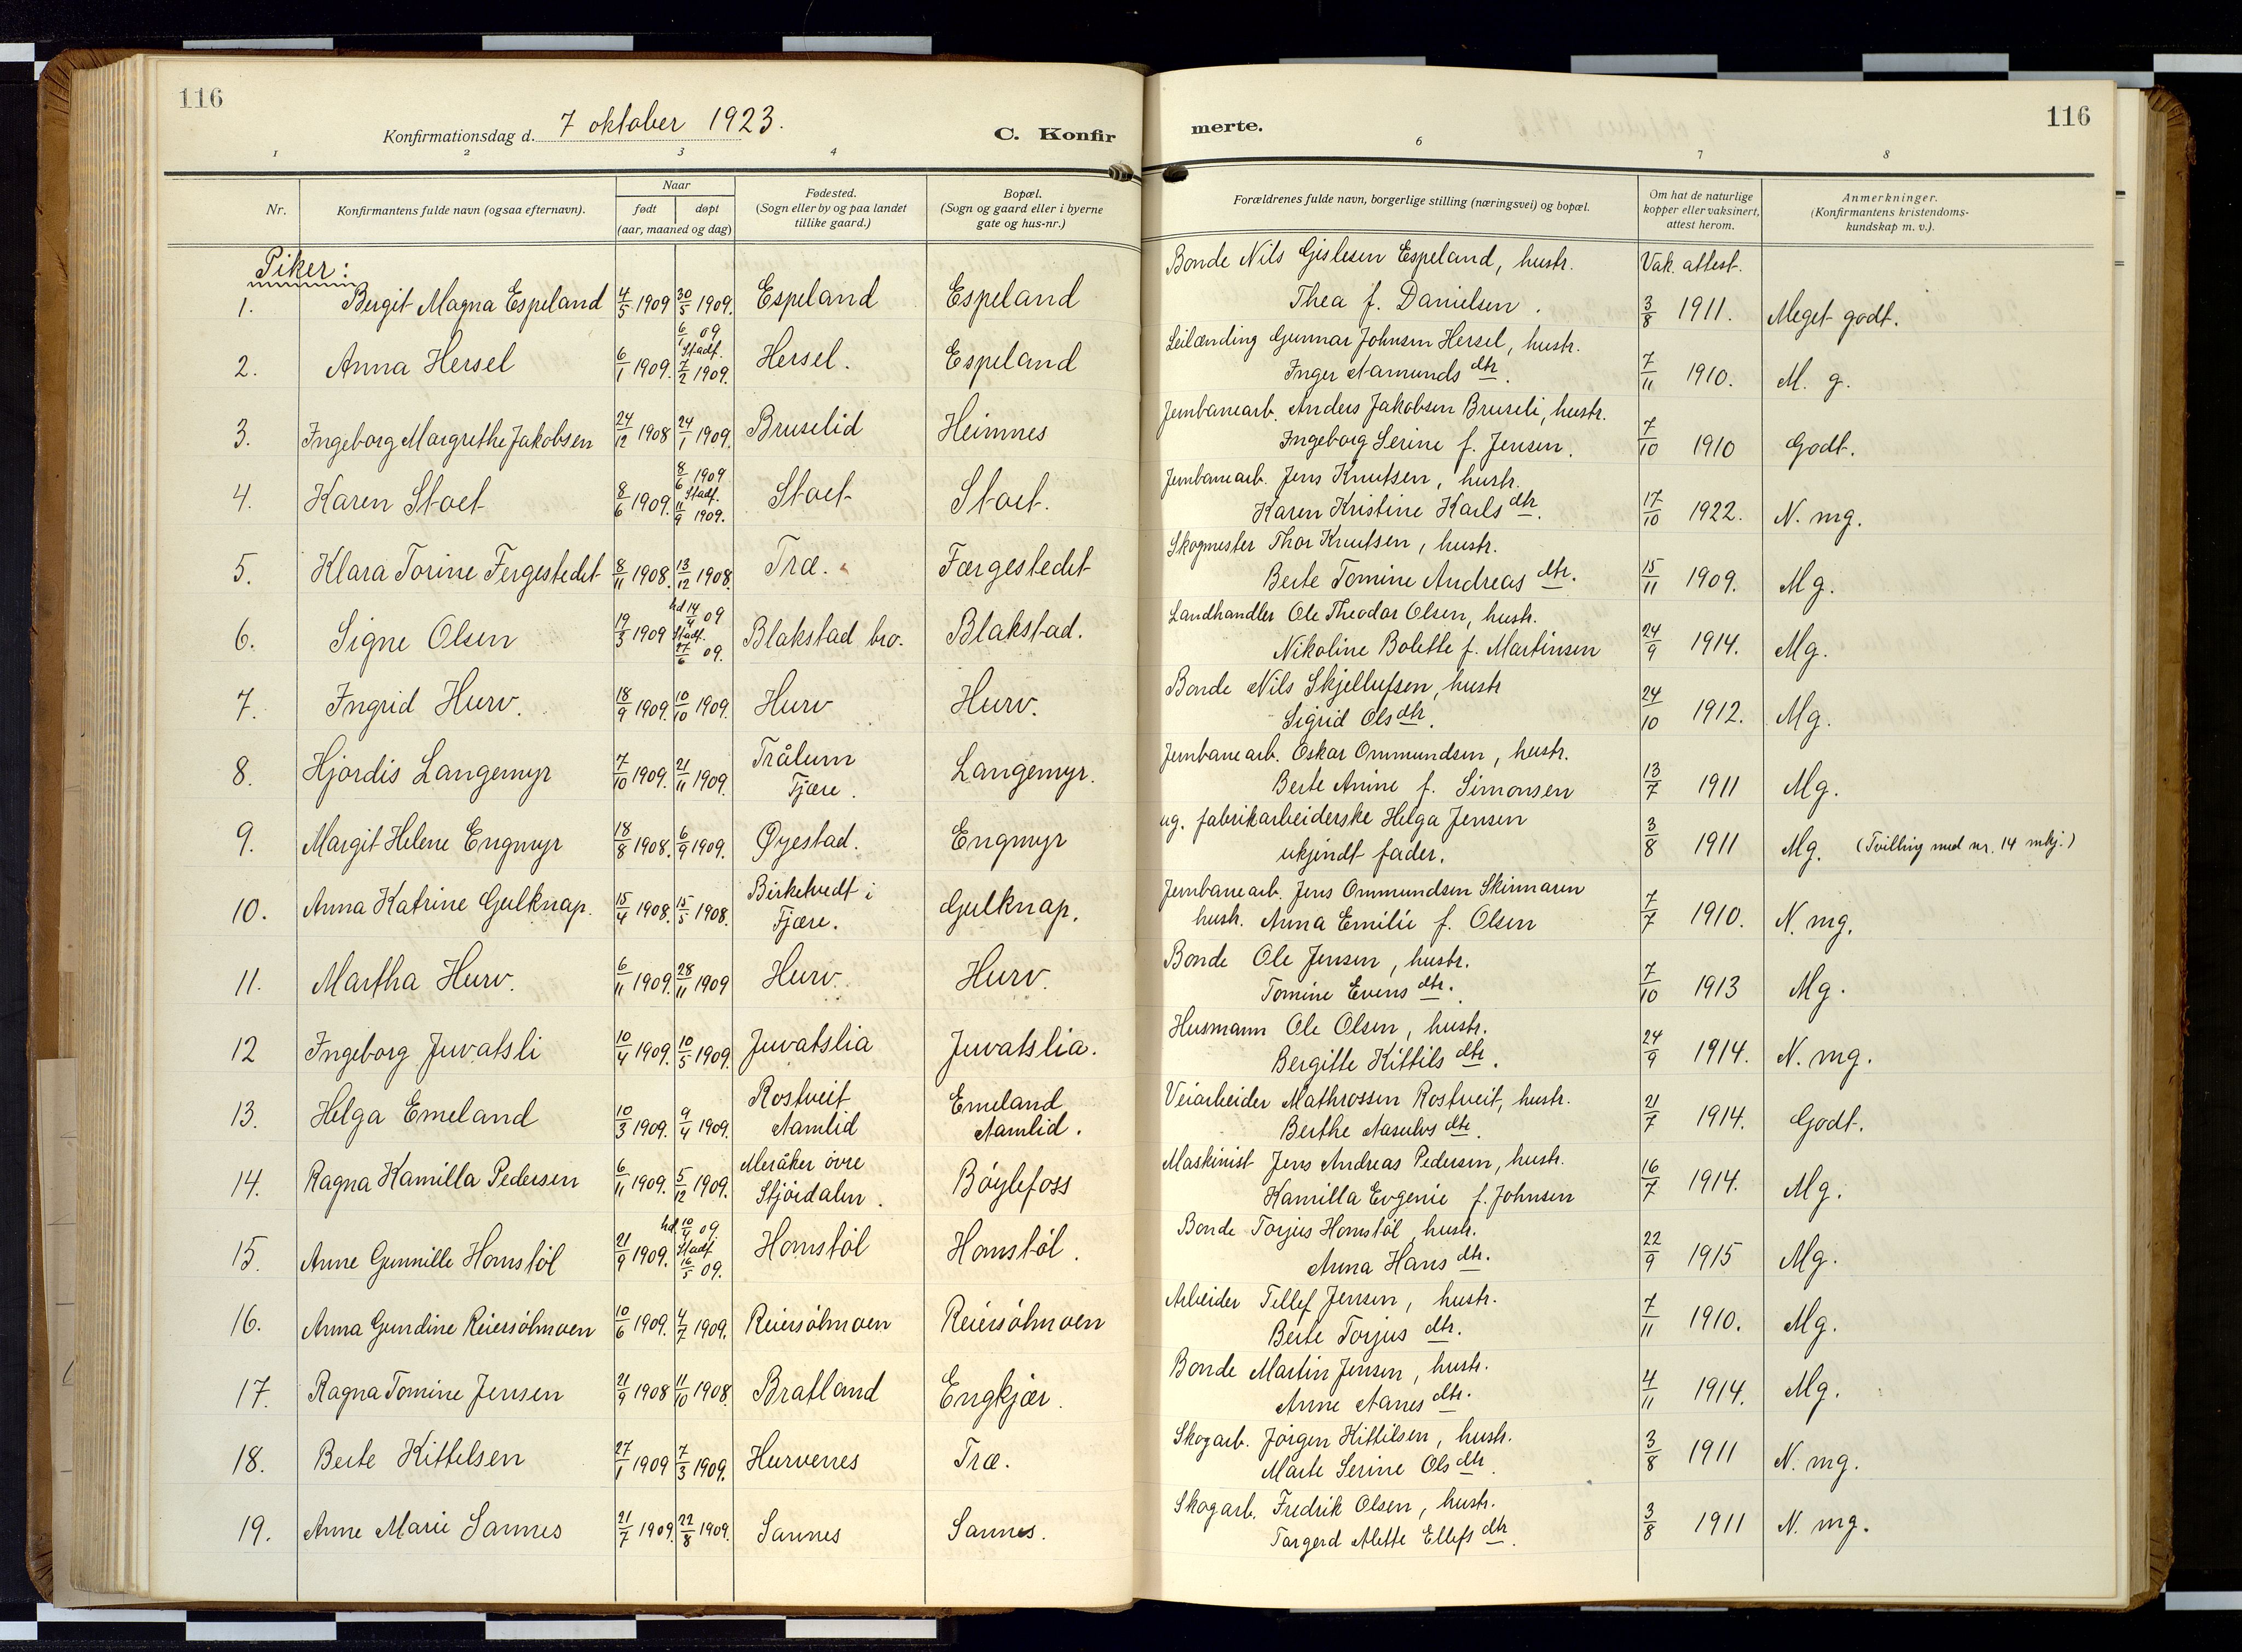 116
Konfirmationsdag d. 7 oktober 1923.
C. Konfir
merte.
116
1 2 3 4 6 7 8
Nr. Konfirmantens fulde navn (ogsaa efternavn). Naar født døpt (aar, maaned og dag) Fødested. (Sogn eller by og paa landet tillike gaard.) Bopæl. (Sogn og gaard eller i byerne gate og hus-nr.) Forældrenes fulde navn, borgerlige stilling (næringsvei) og bopæl. Om hat de naturlige kopper eller vaksinert, attest herom. Anmerkninger. (Konfirmantens kristendoms-kundskap m. v.).
Piker:
1. Bergit Magna Espeland 4/5 1909 30/5 1909. Espeland Espeland Bonde Nils Gislesen Espeland, hustr. Vak. attest.
Thea f. Danielsen. 3/8 1911. Meget godt.
2. Anna Hersel 6/1 1909. 6/1 09 Stadf. 7/2 1909. Hersel. Espeland Leilænding Gunnar Johnsen Hersel, hustr.
Inger Aamunds dtr. 7/11 1910. M. g.
3. Ingeborg Margrethe Jakobsen 24/12 1908 24/1 1909. Bruselid Heimnes Jernbanearb. Anders Jakobsen Bruseli, hustr.
Ingeborg Serine f. Jensen. 7/10 1910 Godt.
4. Karen Stoet 8/6 1909. 8/6 1909 Stadf. 11/9 1909. Stoet Stoet. Jernbanearb. Jens Knutsen, hustr.
Karen Kristine Karls dtr. 17/10 1922. N. mg.
5. Klara Torine Fergestedet 8/11 1908. 13/12 1908. Træ. Færgestedet Skogmester Thor Knutsen, hustr.
Berte Tomine Andreas dtr. 15/11 1909. Mg.
6. Signe Olsen 19/3 1909 hd 14/4 09 Stadf. 27/6 09. Blakstad bro. Blakstad. Landhandler Ole Theodor Olsen, hustr.
Nikoline Bolette f. Martinsen 24/9 1914. Mg.
7. Ingrid Hurv. 18/9 1909. 10/10 1909. Hurv Hurv. Bonde Nils Skjellufsen, hustr
Sigrid Olsdtr. 24/10 1912. Mg.
8. Hjordis Langemyr 7/10 1909. 21/11 1909. Trålum Fjære. Langemyr. Jernbanearb. Oskar Ommundsen, hustr.
Berte Anine f. Simonsen 13/7 1911 Mg.
9. Margit Helene Engmyr 18/8 1908. 6/9 1909. Øyestad. Engmyr ug. fabrikarbeiderske Helga Jensen
ukjendt fader. 3/8 1911 Mg. (Tvilling med nr. 14 mkj.)
10. Anna Katrine Gulknap. 15/4 1908. 15/5 1908. Birketvedt i Fjære. Gulknap. Jernbanearb. Jens Ommundsen Skinnaren
hustr. Anna Emilie f. Olsen 7/7 1910. N. mg.
11. Martha Hurv. 6/11 1909. 28/11 1909 Hurv. Hurv. Bonde Ole Jensen, hustr.
Tomine Evens dtr. 7/10 1913 Mg.
12 Ingeborg Juvatsli 10/4 1909. 10/5 1909. Juvatslia Juvatslia. Husmann Ole Olsen, hustr.
Bergitte Kittils dtr. 24/9 1914. N. mg.
13. Helga Emeland 10/3 1909. 9/4 1909. Rostveit Aamlid Emeland Aamlid. Veiarbeider Mathrossen Rostveit, hustr.
Berthe Aasulvs dtr. 21/7 1914. Godt.
14. Ragna Kamilla Pedersen 6/11 1909. 5/12 1909. Meråker övre Stjördalen. Böylefoss Maskinist Jens Andreas Pedersen, hustr.
Kamilla Evgenie f. Johnsen 16/7 1914. Mg.
15. Anne Gunnille Homstöl 21/9 1909. hd 10/4 09 Stadf. 16/5 09. Homstöl Homstöl. Bonde Torjus Homstöl, hustr.
Anna Hans dtr. 22/9 1915 Mg.
16. Anna Gundine Reiersölmoen 10/6 1909. 4/7 1909. Reiersölmoen Reiersölmoen Arbeider Tellef Jensen, hustr.
Berte Torjus dtr. 7/11 1910. Mg.
17. Ragna Tomine Jensen 21/9 1908 11/10 1908. Bratland Engkjær. Bonde Martin Jensen, hustr.
Anne Aanes dtr. 4/11 1914. Mg.
18. Berte Kittelsen 27/1 1909 7/3 1909. Hurvenes Træ. Skogarb. Jörgen Kittilsen, hustr.
Marte Serine Ols dtr. 3/8 1911 N. mg.
19. Anne Marie Sannes 21/7 1909. 22/8 1909. Sannes Sannes. Skogarb. Fredrik Olsen, hustr.
Torgerd Alette Ellefs dtr. 3/8 1911 N. mg.